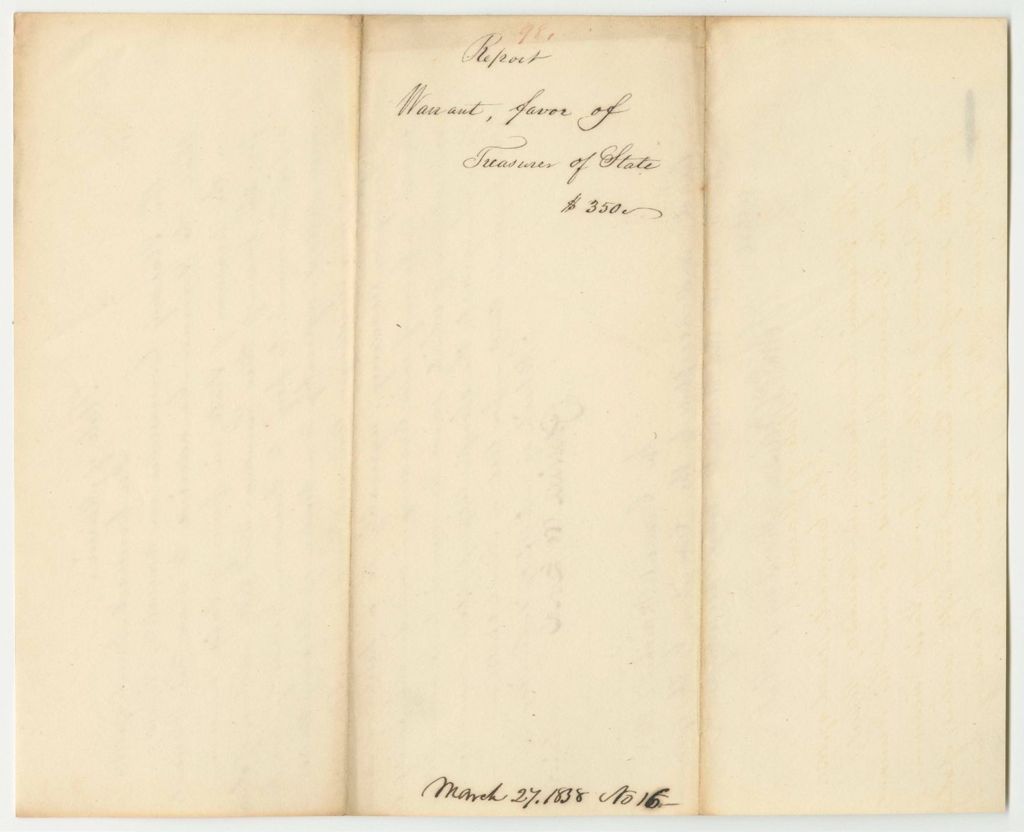 98.
Report
Warrant, favor of
Treasurer of State
$ 350
March 27. 1838 No 16